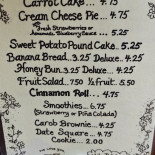 Carrot Cake... 4.75
Cream Cheese Pie... 4.75
Fresh Strawberries or
Homemade Blueberry Sauce... 5.25
Sweet Potato Pound Cake. 5.25
Banana Bread.. 3.25 Deluxe.. 4.25
Honey Bun. 3.25 Deluxe.. 4.25
Fruit Salad... 7.50 ½ Fruit.. 5.50
Cinnamon Roll... 4.75
Smoothies... 6.75
(Strawberry or Piña Colada)
Carob Brownie.. 4.25
Date Square... 4.25
Cookie.. 2.00